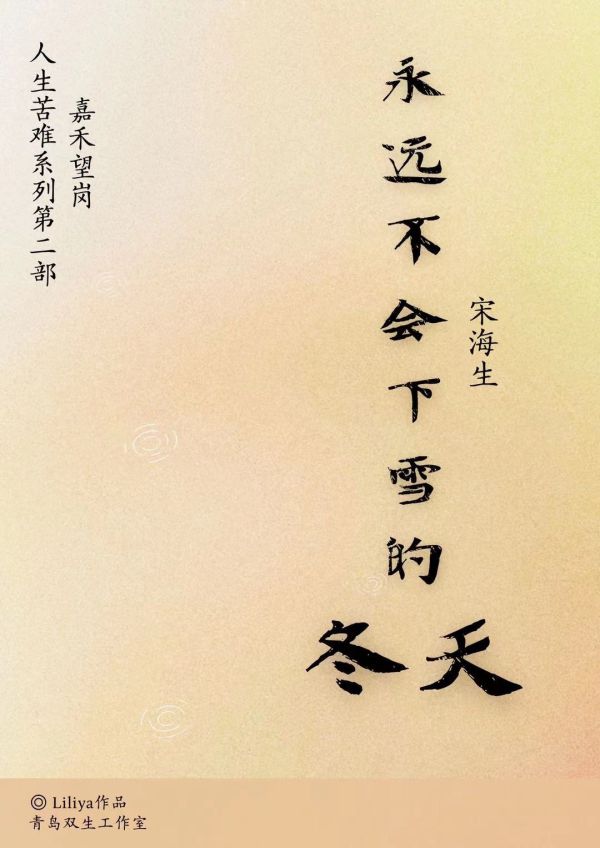 永远不会下雪的
冬天
宋海生
人生苦难系列第二部
嘉禾望岗
◎ Liliya作品
青岛双生工作室